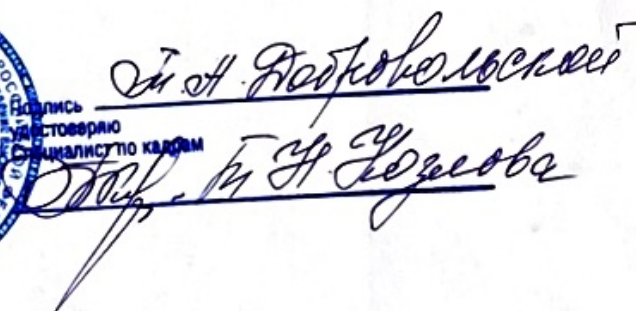 Подпись Т.А. Добровольской
удостоверяю
Специалист по кадрам
Т Н Козлова